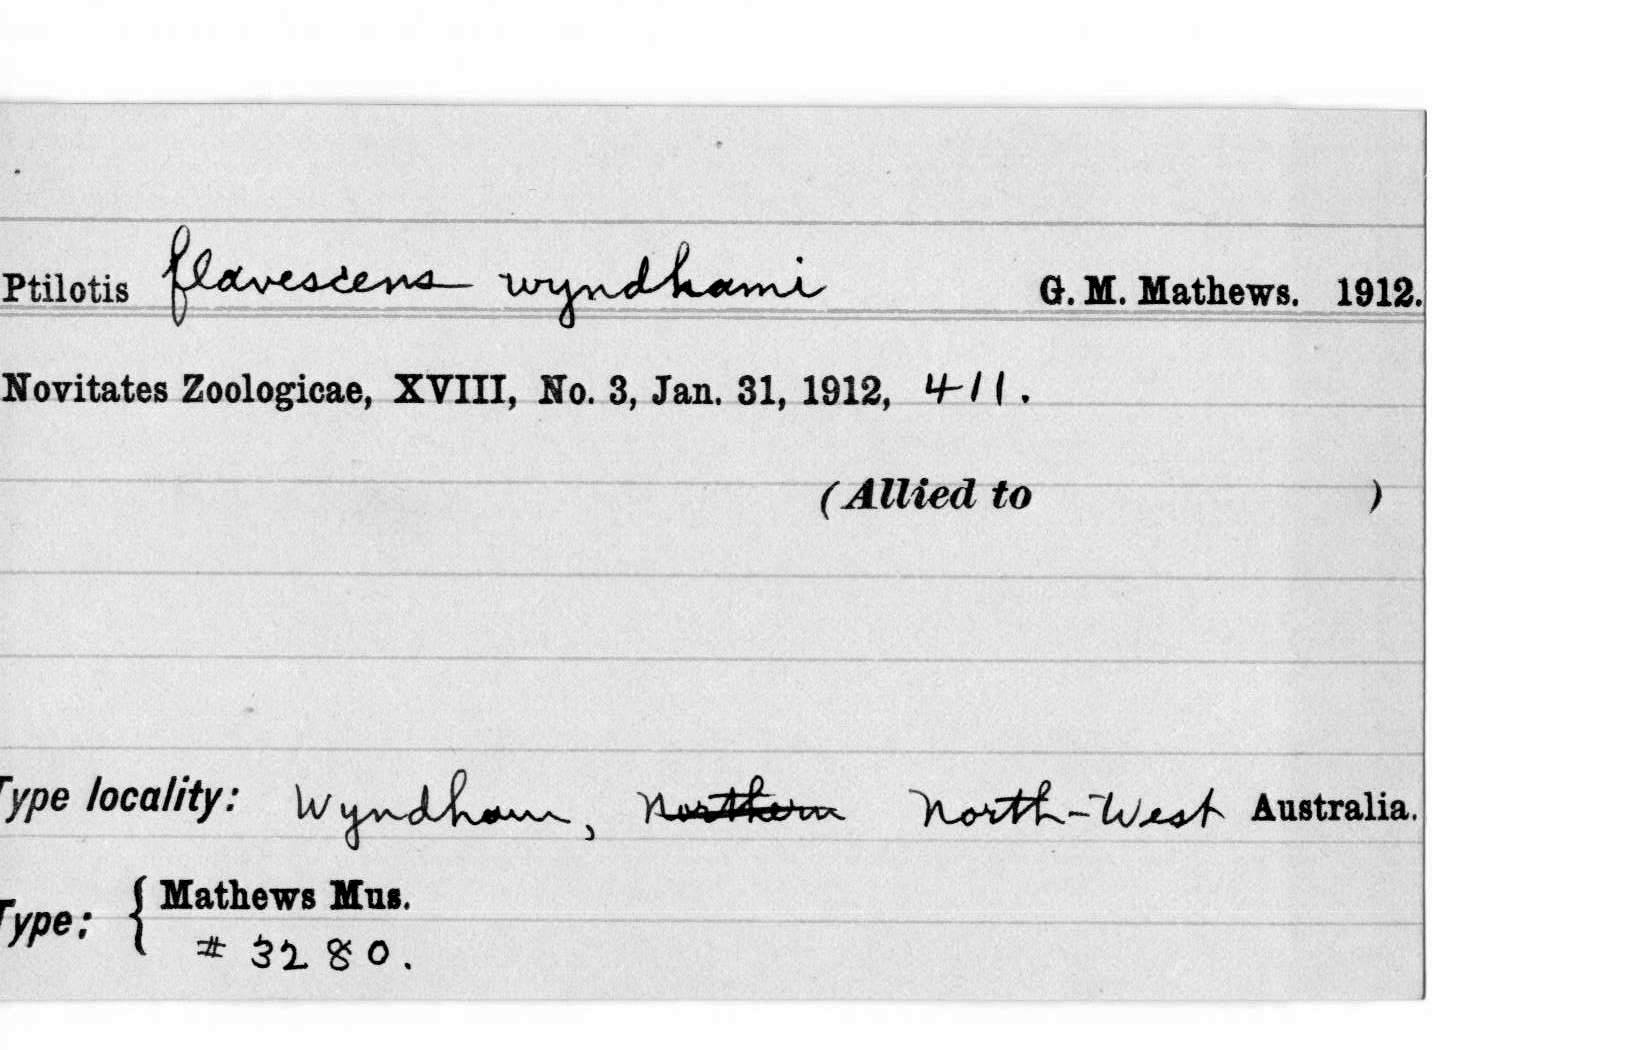 Ptilotis flavescens wyndhami G. M. Mathews. 1912.
Novitates Zoologicae, XVIII, No. 3, Jan. 31, 1912, 411.
(Allied to )
Type locality: Wyndham, Northern North-West Australia.
Type: { Mathews Mus.
# 3280.